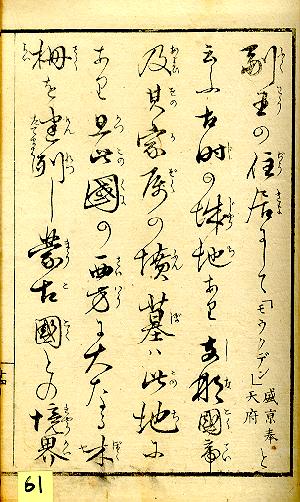 副王の住居にして「モウクデン」盛京奉天府と
云ふ古時の城地あり支那國帝
及其家属の墳墓ハ此地に
あり且此國の西方に大なる木
柵を建列し蒙古國との境界
61